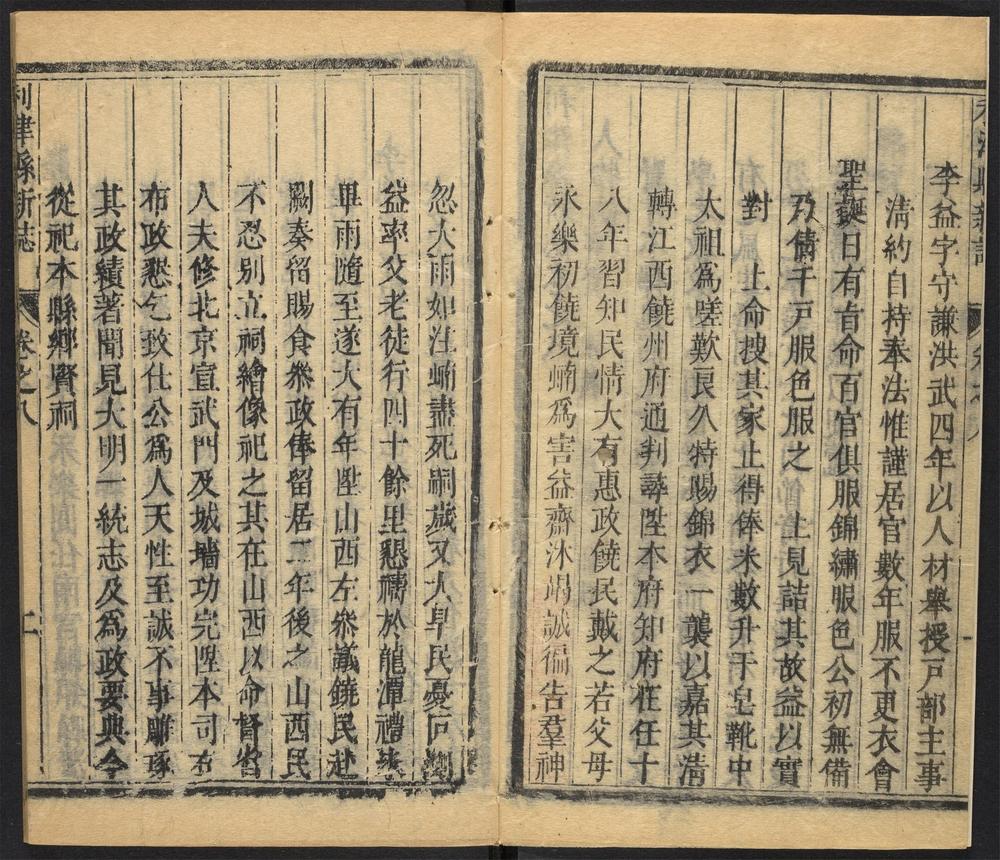 李益字守謙洪武四年以人材舉授戸部主事
清約自持奉法惟謹居官數年服不更衣會
聖誕日有旨命百官俱服錦繡服色公初無備
乃倩千戸服色服之 上見詰其故益以實
對 上命搜其家止得俸米數升于皂靴中
太祖爲嗟歎良久特賜錦衣一襲以嘉其清
轉江西饒州府通判尋陞本府知府在任十
八年習知民情大有惠政饒民戴之若父母
永樂初饒境蝻爲害益齋沐竭誠徧告羣神
忽大雨如注蝻盡死嗣歲又大旱民憂
益率父老徒行四十餘里懇禱於龍潭禮
畢雨隨至遂大有年陞山西左叅議饒民赴
闕奏留賜食叅政俸留居二年後之山西民
不忍别立祠繪像祀之其在山西以命督
人夫修北京宣武門及城墻功完陞本司右
布政懇乞致仕公爲人天性至誠不事雕琢
其政績著聞見大明一統志及爲政要典今
從祀本縣鄉賢祠
利津縣新志 卷之八 二